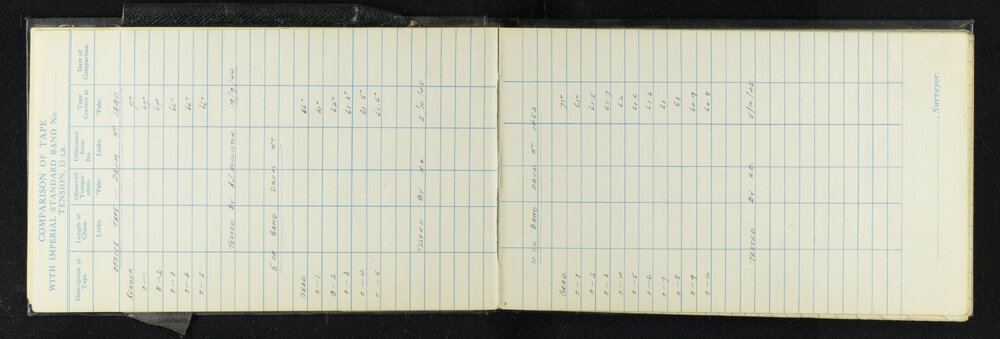 COMPARISON OF TAPE
WITH IMPERIAL STANDARD BAND No.
TENSION, 15 LB.
Description of Tape. Length of Chain. Observed Temperature. Difference from No. Tape Correct at Date of Comparison.
Links. °Fahr. Links. °Fahr.
OFFICE TAPE — DRUM No 1490
READER 71°
0-1 67°
0-2 67
0-3 66°
0-4 66°
0-5 66°
TESTED BY 9/9/44
5 CH BAND DRUM No
GRAD 66°
0-1 60°
0-2 62°
0-3 61.3°
0-4 61.5°
0-5 61.6°
TESTED BY H.O. 5/10/45
10 CH BAND DRUM No 1452
GRAD 71°
0-1 61°
0-2 61.5
0-3 61.7
0-4 62
0-5 61.6
0-6 61.3
0-7 61
0-8 61
0-9 60.9
0-10 60.8
TESTED BY H.O. 5/10/45
Surveyor.